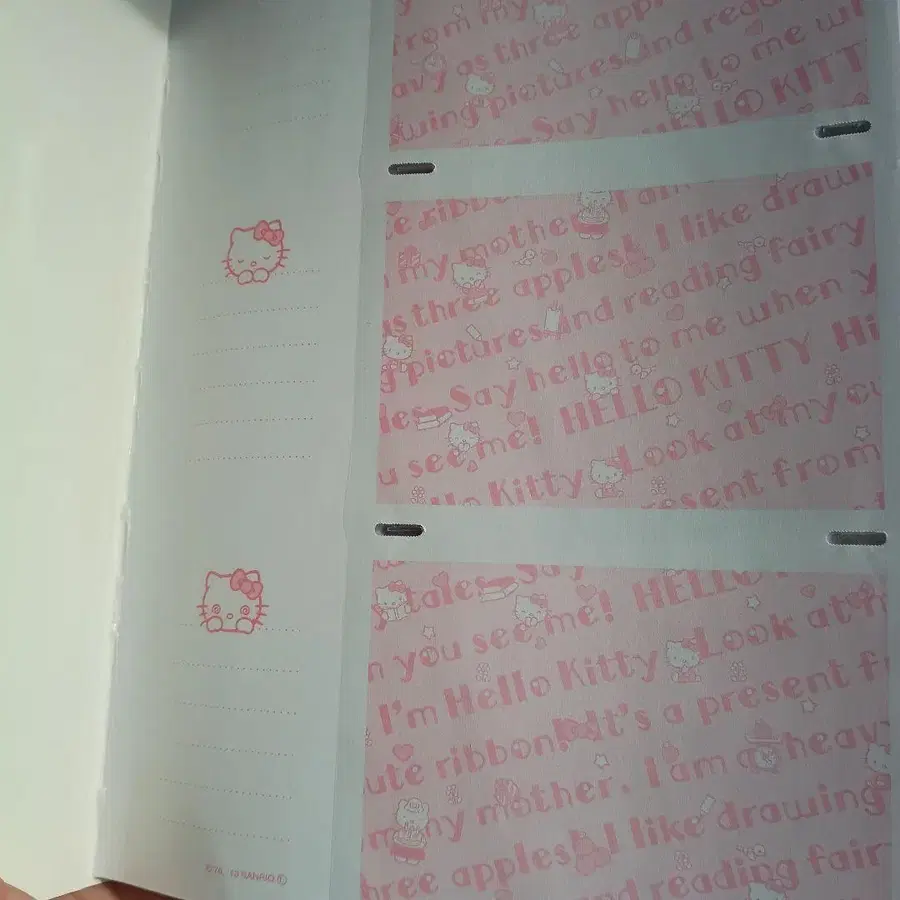 from my
avy as three appl
wing pictures and read
Say hello to me wh
HELLO KITT
te ribb
my mother. I am
as three apples! I like drawi
g pictures and reading fairy
les. Say hello to me when y
u see me! HELLO KITTY Hi
llo Kitty Look at my cu
esent from
y tales. Say
n you see me! HELLO
I'm Hello Kitty Look at m
ute ribbon! It's a present f
m my mother. I am a heavy
three apples! I like drawing
nd reading fair
SANRIO